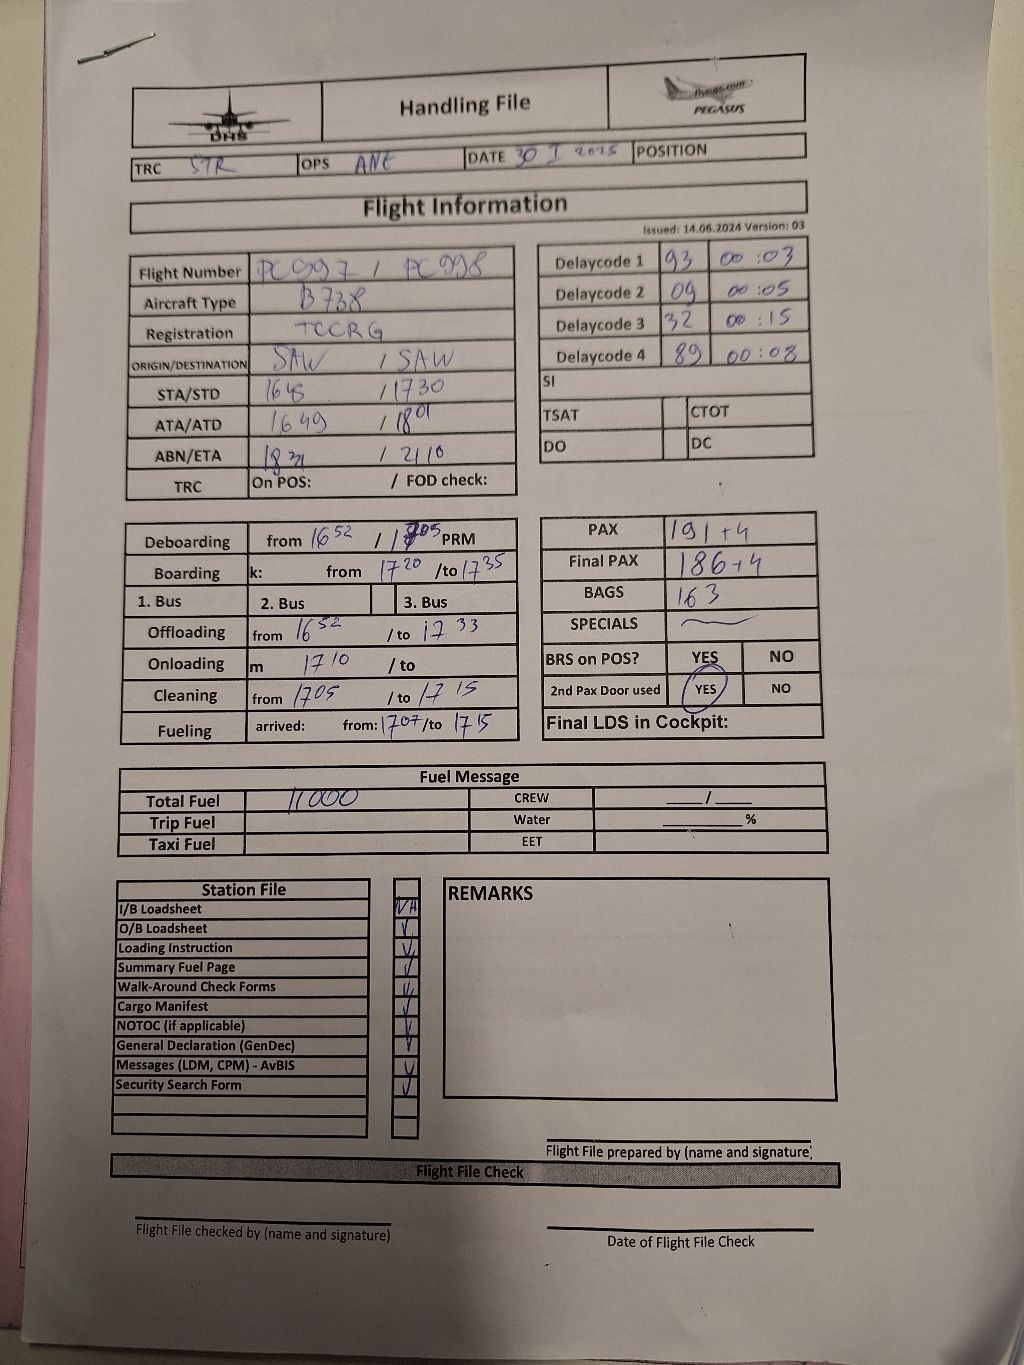 DHS
Handling File
flypgs.com
PEGASUS
TRC STR OPS ANE DATE 30 I 2025 POSITION
Flight Information
Issued: 14.06.2024 Version: 03
Flight Number PC997 / PC998
Aircraft Type B738
Registration TCCRG
ORIGIN/DESTINATION SAW / SAW
STA/STD 1645 / 1730
ATA/ATD 1649 / 1801
ABN/ETA / 2110
TRC On POS: / FOD check:
Delaycode 1 93 00:03
Delaycode 2 09 00:05
Delaycode 3 32 00:15
Delaycode 4 89 00:08
SI
TSAT CTOT
DO DC
Deboarding from 1652 / 1705 PRM
Boarding k: from 1720 /to 1735
1. Bus 2. Bus 3. Bus
Offloading from 1652 / to 1733
Onloading m 1710 / to
Cleaning from 1705 / to 1715
Fueling arrived: from: 1707 /to 1715
PAX 191+4
Final PAX 186+4
BAGS 163
SPECIALS
BRS on POS? YES NO
2nd Pax Door used YES NO
Final LDS in Cockpit:
Fuel Message
Total Fuel 11000 CREW ___/___
Trip Fuel Water ________%
Taxi Fuel EET
Station File
I/B Loadsheet NA
O/B Loadsheet
Loading Instruction
Summary Fuel Page
Walk-Around Check Forms
Cargo Manifest
NOTOC (if applicable)
General Declaration (GenDec)
Messages (LDM, CPM) - AvBIS
Security Search Form
REMARKS
Flight File prepared by (name and signature)
Flight File Check
Flight File checked by (name and signature)
Date of Flight File Check